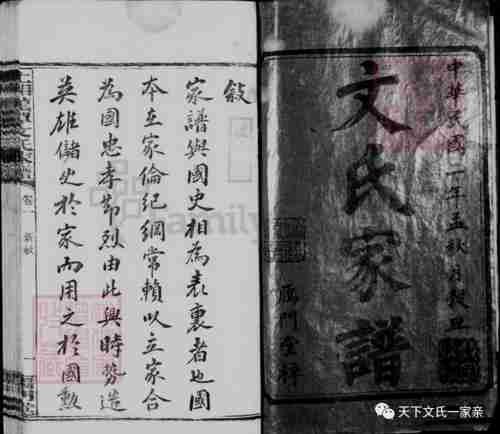 中華民國
年孟秋月穀旦
文氏家譜
門堂梓
敘
家譜與國史相為表裏者也國
本在家倫紀綱常賴以立家合
為國忠孝節烈由此興時勢造
英雄儲史於家而用之於國勲
文氏家譜
卷一
新敘
Family
天下文氏一家亲